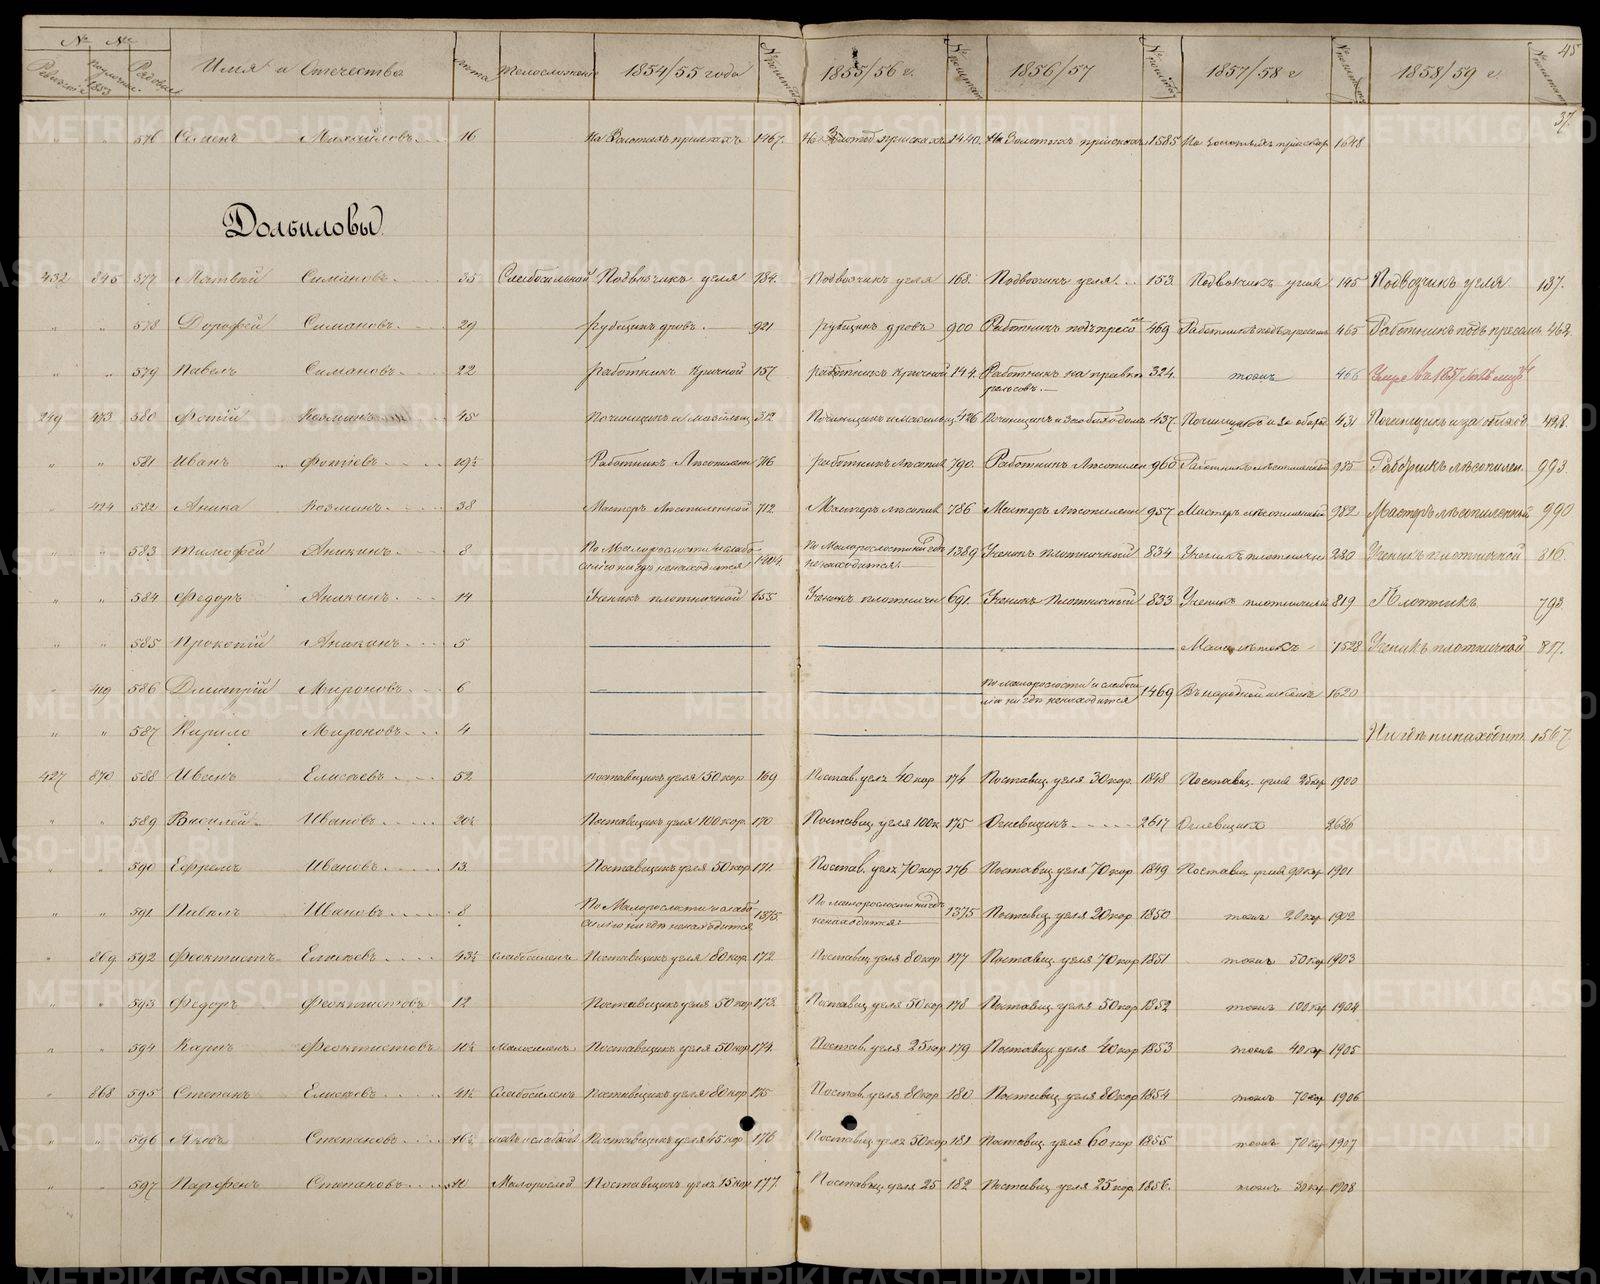 45
№ № Имя и Отечество Лѣта Телосложение 1854/55 года 1855/56 г. 1856/57 1857/58 г 1858/59 г.
37.
" " 576 Семенъ Михайловъ 16 На Золотыхъ приискахъ 1467. На Золотыхъ приискахъ 1440. На Золотыхъ приискахъ 1585 На золотыхъ приискахъ 1648
Долбиловы
432 845 577 Матвѣй Симановъ 35 Слабосильной Подвозчикъ угля 184. Подвозчикъ угля 168. Подвозчикъ угля 153. Подвозчикъ угля 145 Подвозчикъ угля 137.
" " 578 Дорофей Симановъ 29 рубщикъ дровъ 921 рубщикъ дровъ 900 Работникъ подъ пресо 469 Работникъ подъ пресомъ 465 Работникъ подъ пресомъ 462.
" " 579 Павелъ Симановъ 22 работникъ Кричной 157 работникъ Кричной 144. Работникъ на правки рельсовъ 324. тожъ 466
249 473 580 Фотiй Козминъ 45 Починщикъ и мазильщ 312 Починщикъ и мазильщ 426 437. 431 428.
" " 581 Иванъ Фотiевъ 19½ Работникъ Лѣсопилен 716 работникъ лѣсопил 790. Работникъ Лѣсопилен 960 Работникъ лѣсопильной 985 лѣсопилен. 993
" 424 582 Аника Козминъ 38 Мастеръ Лѣсопиленной 712. Мастеръ лѣсопил 786 Мастеръ Лѣсопилен 957 Мастеръ лѣсопиленный 982 Мастеръ лѣсопиленный 990
" " 583 Тимофей Аникинъ 8 По Малорослости и слабо силiю нигдѣ ненаходится 1404. По Малорослости нигдѣ ненаходится 1389 Ученикъ плотничной 834 Ученикъ плотничн 280 Ученикъ плотничной 816.
" " 584 Федоръ Аникинъ 14 Ученикъ плотничной 655 Ученикъ плотничн 691. Ученикъ Плотничный 833 Ученикъ плотничный 819 Плотникъ 793
" " 585 Прокопiй Аникинъ 5 Малолѣтокъ 1528 Ученикъ плотничной 817.
" 419 586 Дмитрiй Мироновъ 6 По малорослости и слабоси лiю нигдѣ ненаходится 1469 Въ народной школѣ 1620
" " 587 Кирило Мироновъ 4 Нигдѣ ненаходит. 1567.
427 870 588 Иванъ Елисѣевъ 52 поставщикъ угля 50 кор 169 Постав. угля 40 кор 174 Поставщ. угля 30 кор. 1848 Поставщ. угля 25 кор 1900
" " 589 Василей Ивановъ 20½ Поставщикъ угля 100 кор. 170 Поставщ. угля 100 к 175 Огневщикъ 2617 Огневщикъ 2686
" " 590 Ефремъ Ивановъ 13. Поставщикъ угля 50 кор 171. Постав. угля 70 кор 176 Поставщ угля 70 кор 1849 Поставщ угля 90 кор 1901
" " 591 Павелъ Ивановъ 8 По Малорослости и слабо силiю нигдѣ ненаходится 1375 По малорослости нигдѣ ненаходится 1375 Поставщ угля 20 кор 1850 тожъ 20 кор 1902
" 869 592 Феоктистъ Елисѣевъ 43½ слабосиленъ Поставщикъ угля 80 кор. 172. Поставщ угля 80 кор 177 Поставщ. угля 70 кор 1851 тожъ 50 кор 1903
" " 593 Федоръ Феоктистовъ 12 Поставщикъ угля 50 кор 173. Поставщ угля 50 кор 178 Поставщ. угля 50 кор 1852 тожъ 100 кор 1904
" " 594 Карпъ Феоктистовъ 10½ Малосиленъ Поставщикъ угля 50 кор 174. Постав. угля 25 кор 179 Поставщ угля 40 кор 1853 тожъ 40 кор 1905
" 868 595 Степанъ Елисѣевъ 41½ Слабосиленъ Поставщикъ угля 80 кор 175 Постав. угля 80 кор 180 Поставщ угля 80 кор 1854 тожъ 70 кор 1906
" " 596 Яковъ Степановъ 16½ Поставщикъ угля 45 кор 176 Поставщ угля 50 кор 181 Поставщ. угля 60 кор 1855 тожъ 70 кор 1907
" " 597 Парфенъ Степановъ 10 Малорослой Поставщикъ угля 15 кор 177. Поставщ угля 25 182 Поставщ угля 25 кор 1856. тожъ 30 кор 1908